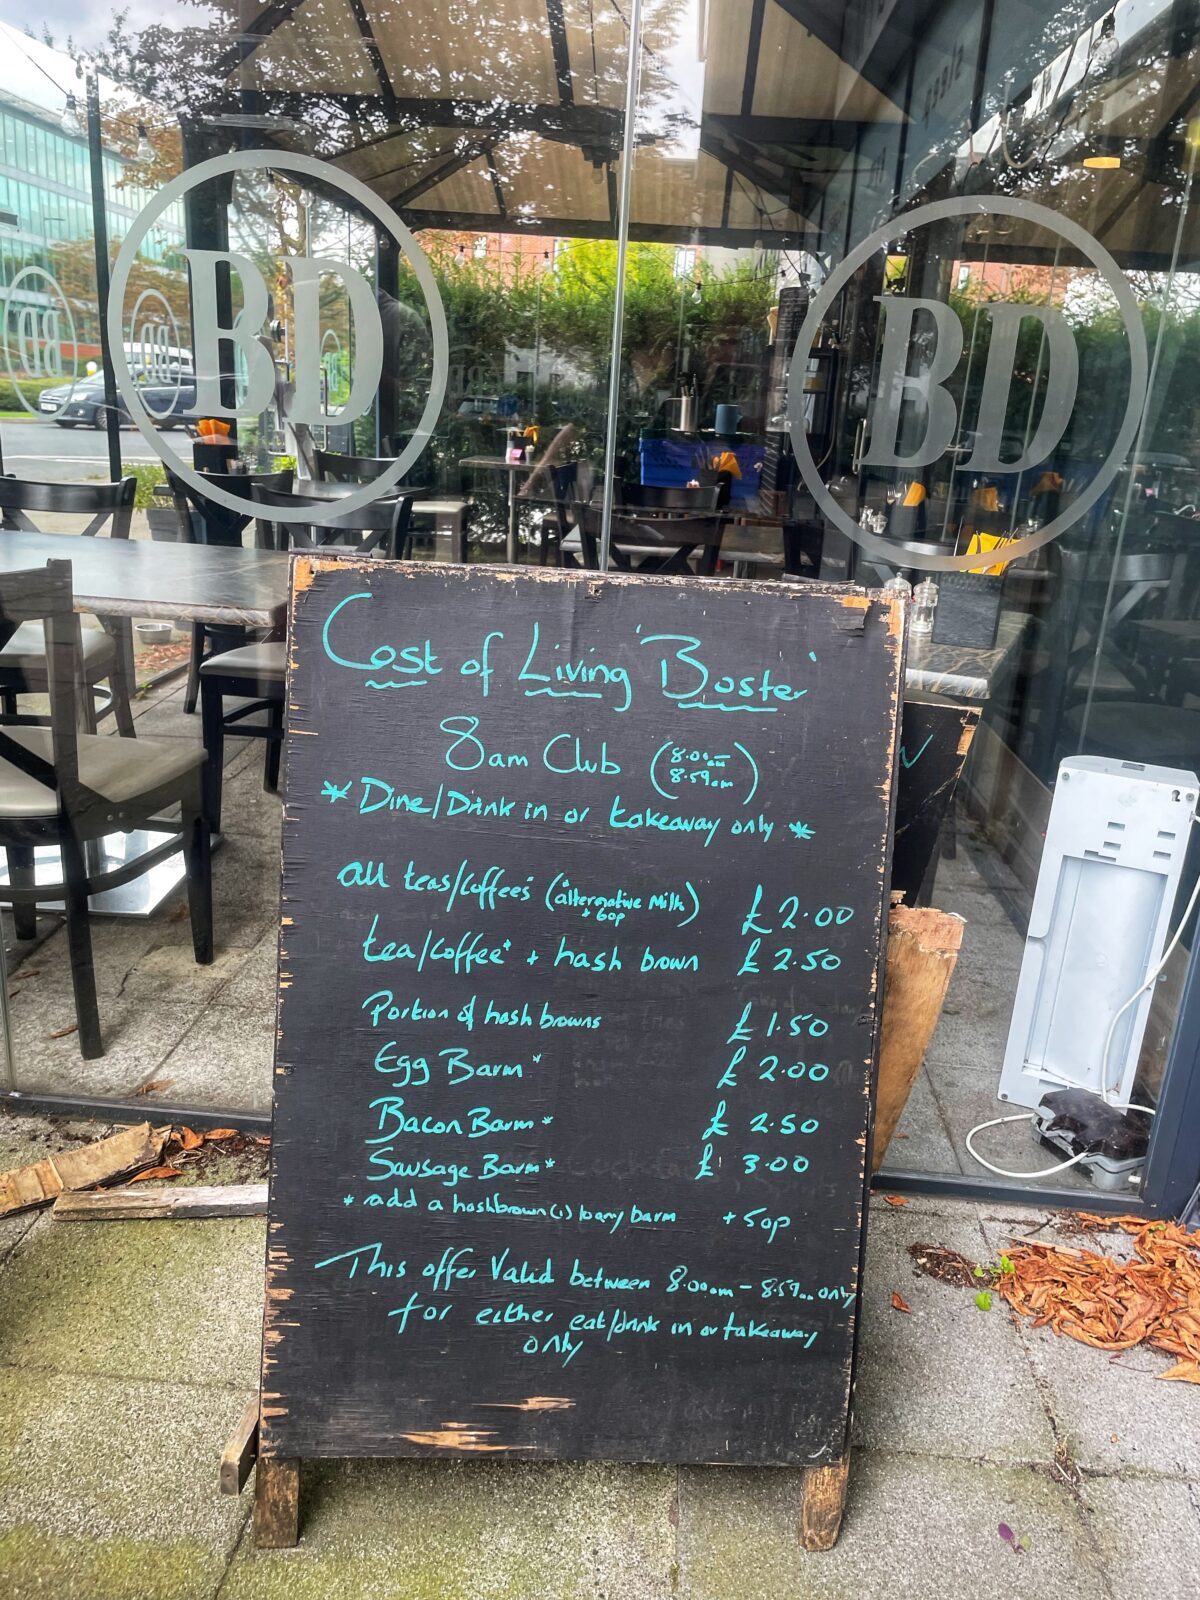 BD
BD
Cost of Living 'Boster'
8am Club (8.00am
8.59am)
* Dine/Drink in or takeaway only *
all teas/coffees* (*alternative Milk
+ 60p)
£2.00
tea/coffee* + hash brown £2.50
Portion of hash browns £1.50
Egg Barm* £2.00
Bacon Barm* £2.50
Sausage Barm* £3.00
* add a hashbrown(1) to any barm +50p
This offer Valid between 8.00am - 8.59am only
for either eat/drink in or takeaway
only